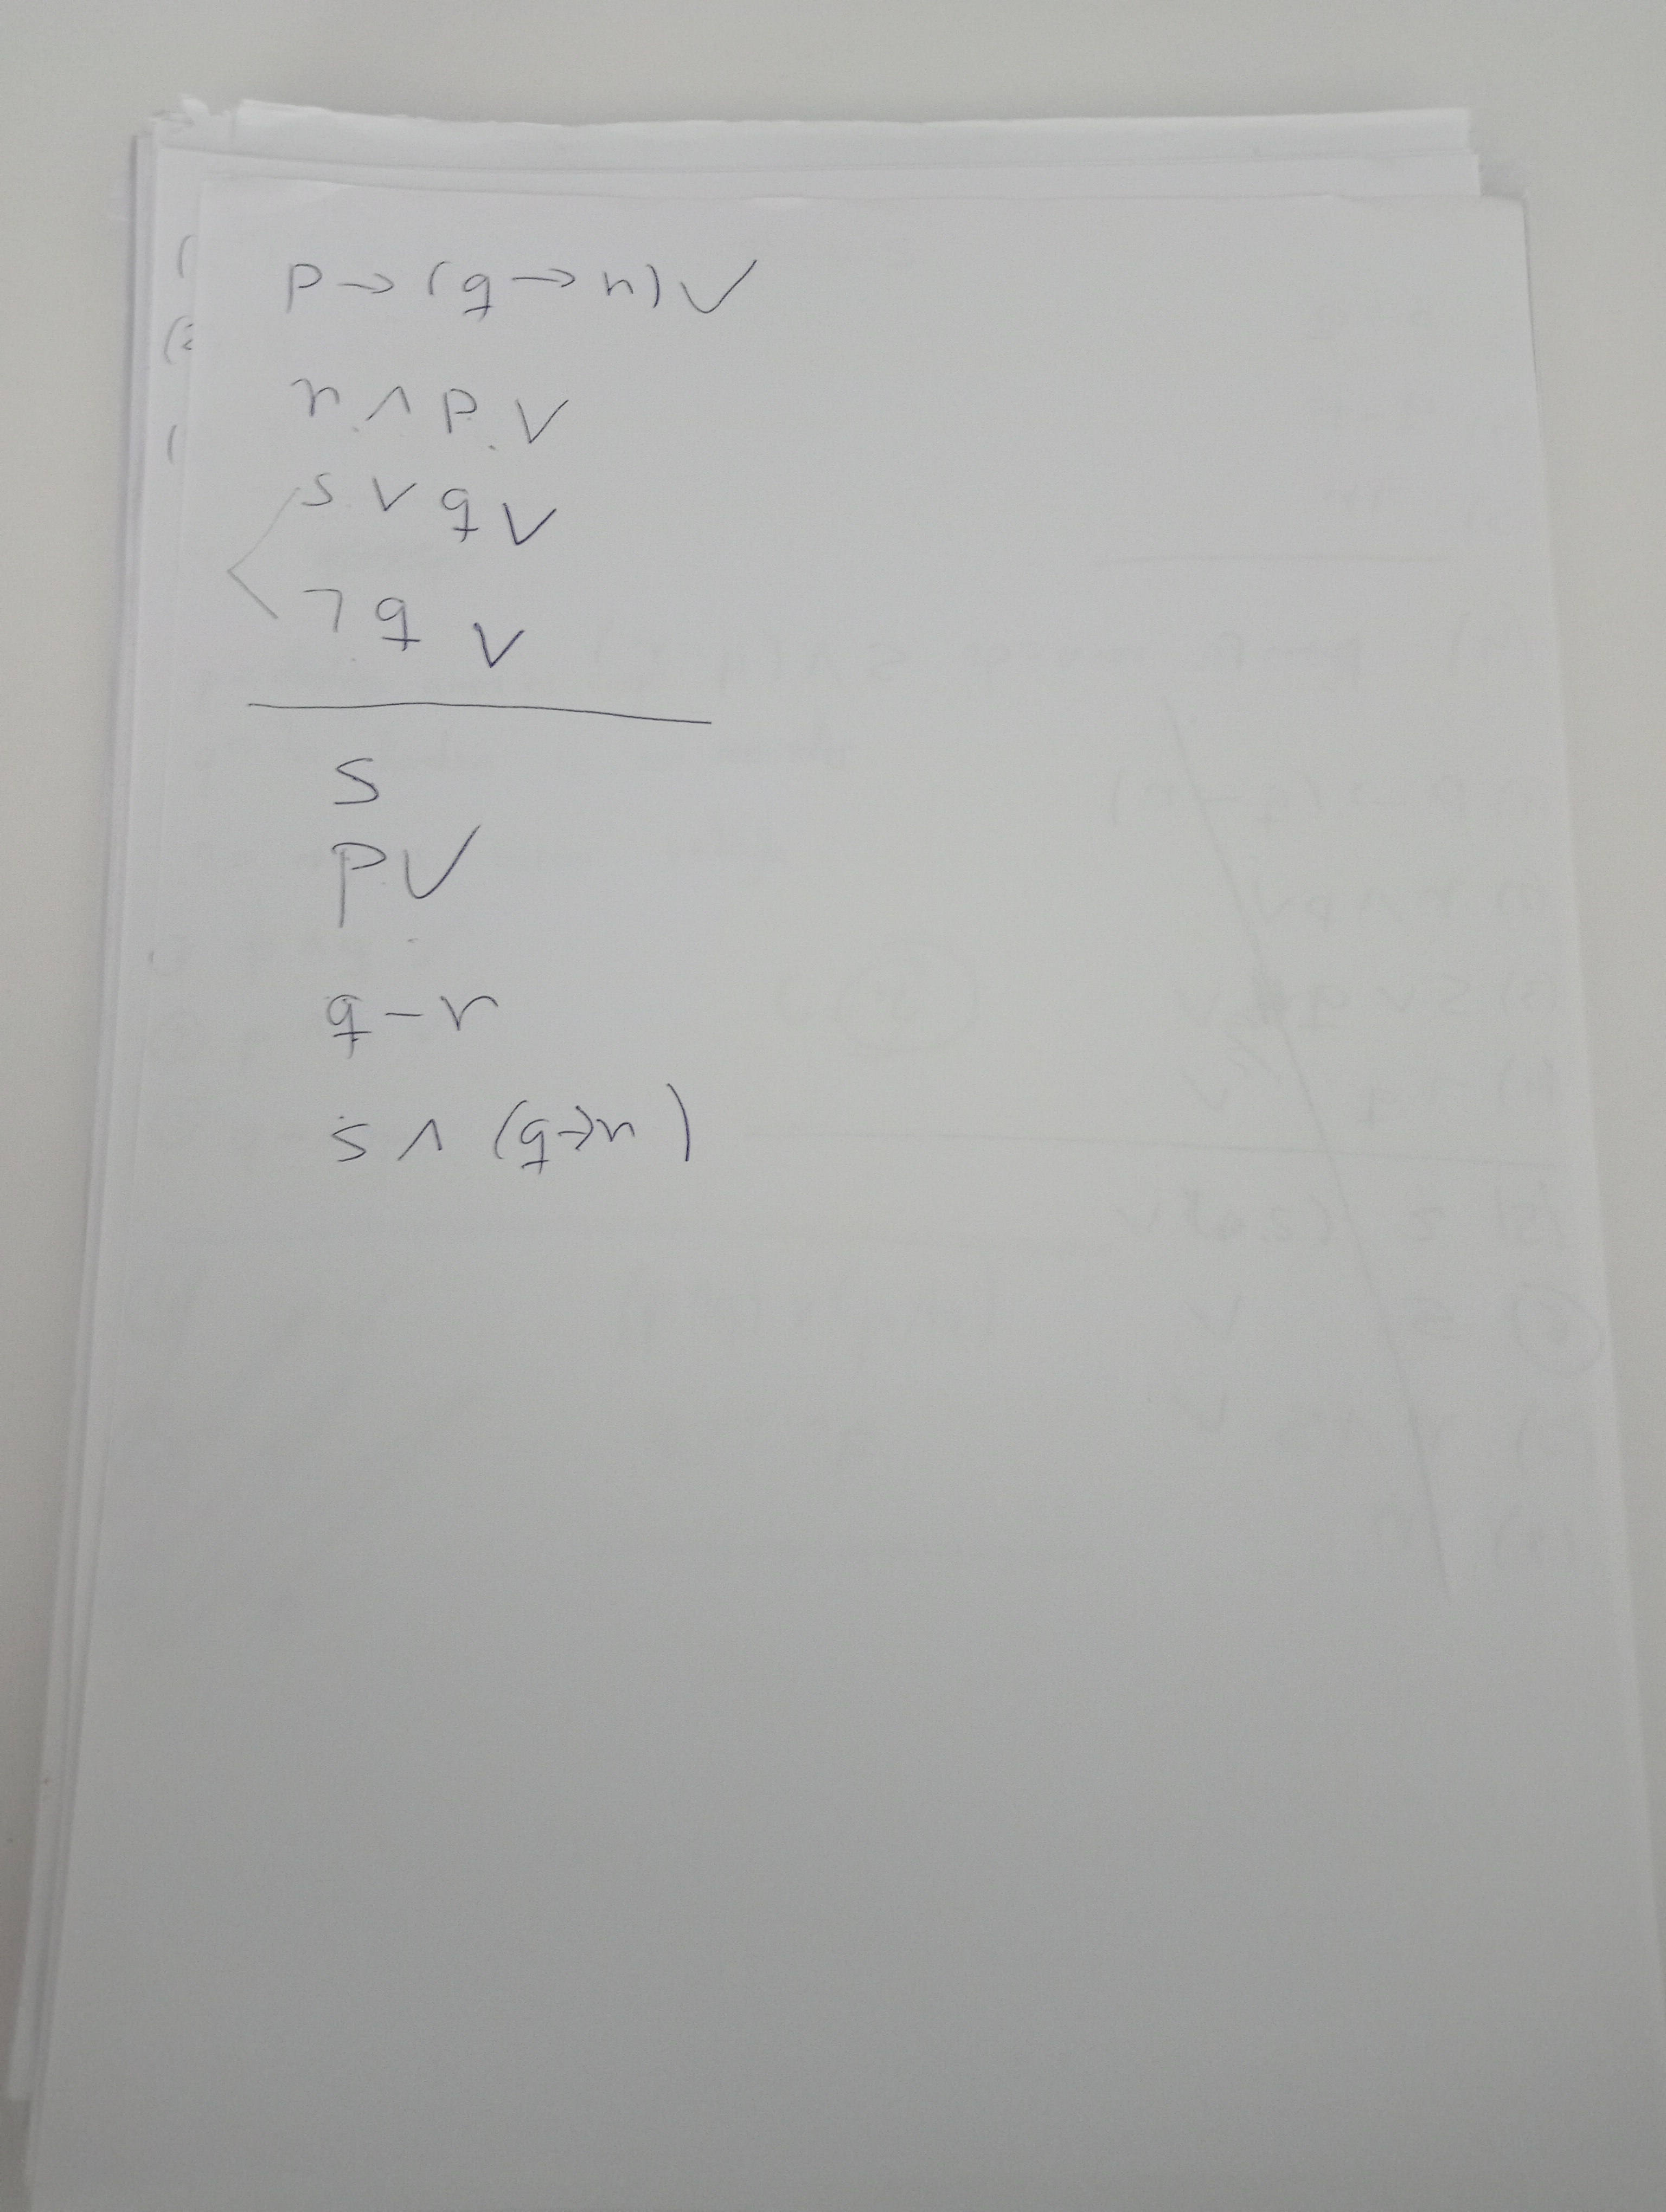 p → (q → r) ✓
r ∧ p ✓
s ∨ q ✓
¬ q ✓
s
p ✓
q - r
s ∧ (q → r)